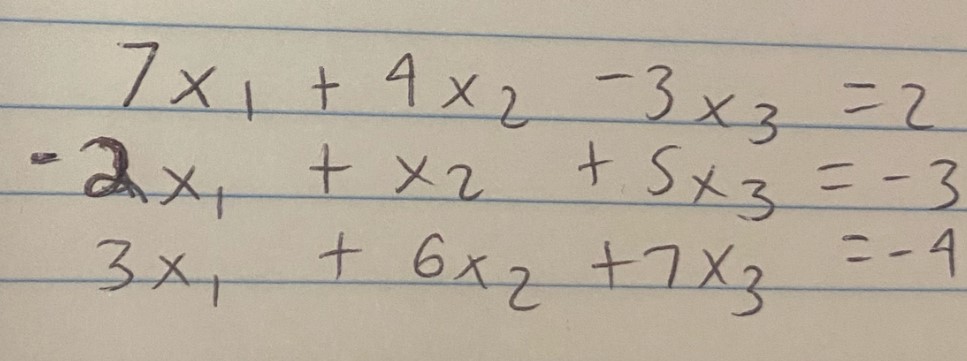 7x₁ + 4x₂ -3x₃ = 2
-2x₁ + x₂ + 5x₃ = -3
3x₁ + 6x₂ +7x₃ = -4